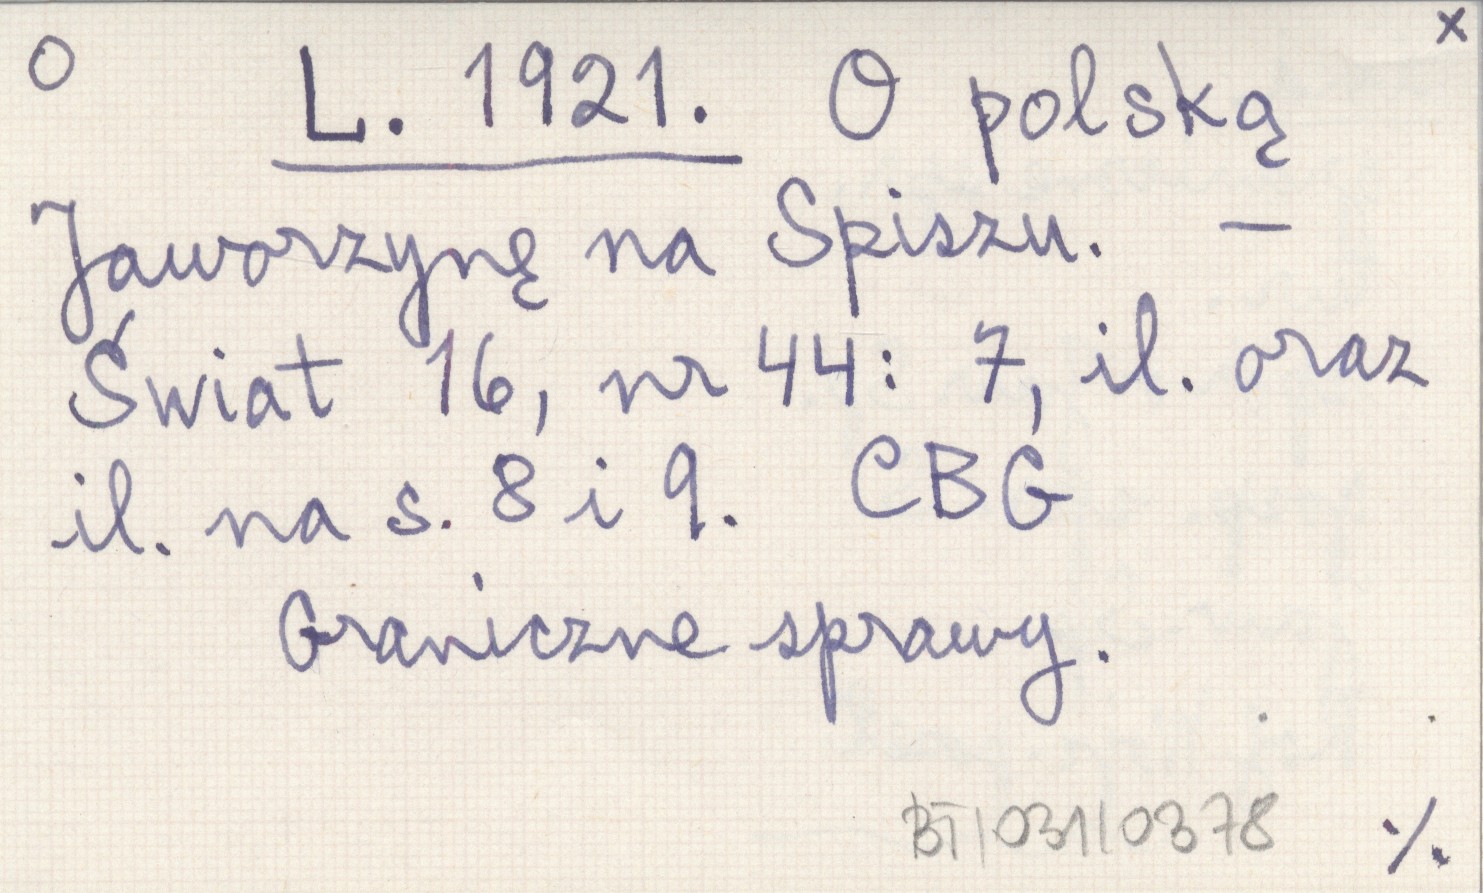 O L. 1921. O polską x
Jaworzynę na Spiszu. —
Świat 16, nr 44: 7, il. oraz
il. na s. 8 i 9. CBG
Graniczne sprawy.
BT/031/0378 ./.